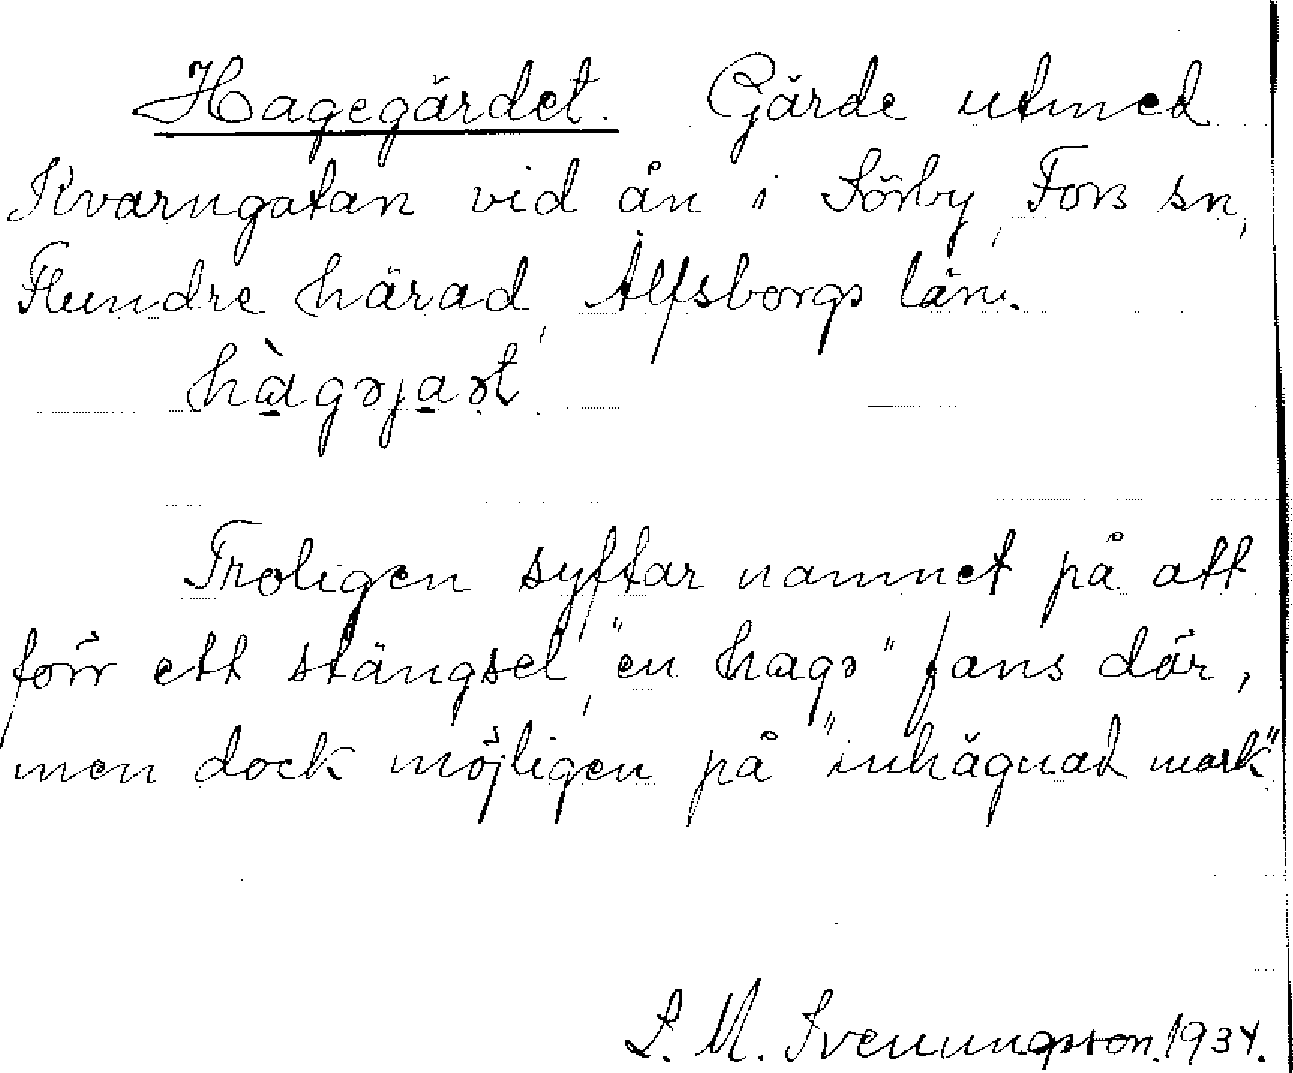 Hagegärdet. Gärde utmed
Kvarngatan vid ån i Sörby, Fors sn,
Flundre härad, Älfsborgs län.
hàgəjaṣt.
Troligen syftar namnet på att
förr ett stängsel, "en hagə" fans där,
men dock möjligen på "inhägnad mark"
S. M. Svenungsson. 1934.